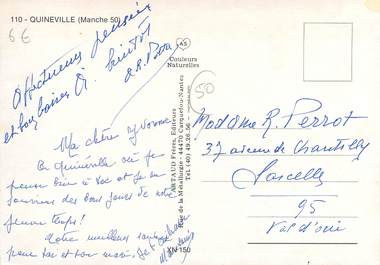 110 - QUINEVILLE (Manche 50)
6€
Affectueuses pensées
et bons baisers à bientôt
Couleurs
Naturelles
50
Ma chère Yvonne
De Quinéville où je
pense bien à toi et je me
souviens des bons jours de notre
jeune temps !
Notre meilleur
pour toi et ton mari. Je t'
ARTAUD Frères, Editeurs
Rue de la Métallurgie - 44470 Carquefou-Nantes
Tél. (40) 49.26.56
XN 150
Madame R. Perrot
37 avenue de Chantilly
Sarcelles
95
Val d'Oise